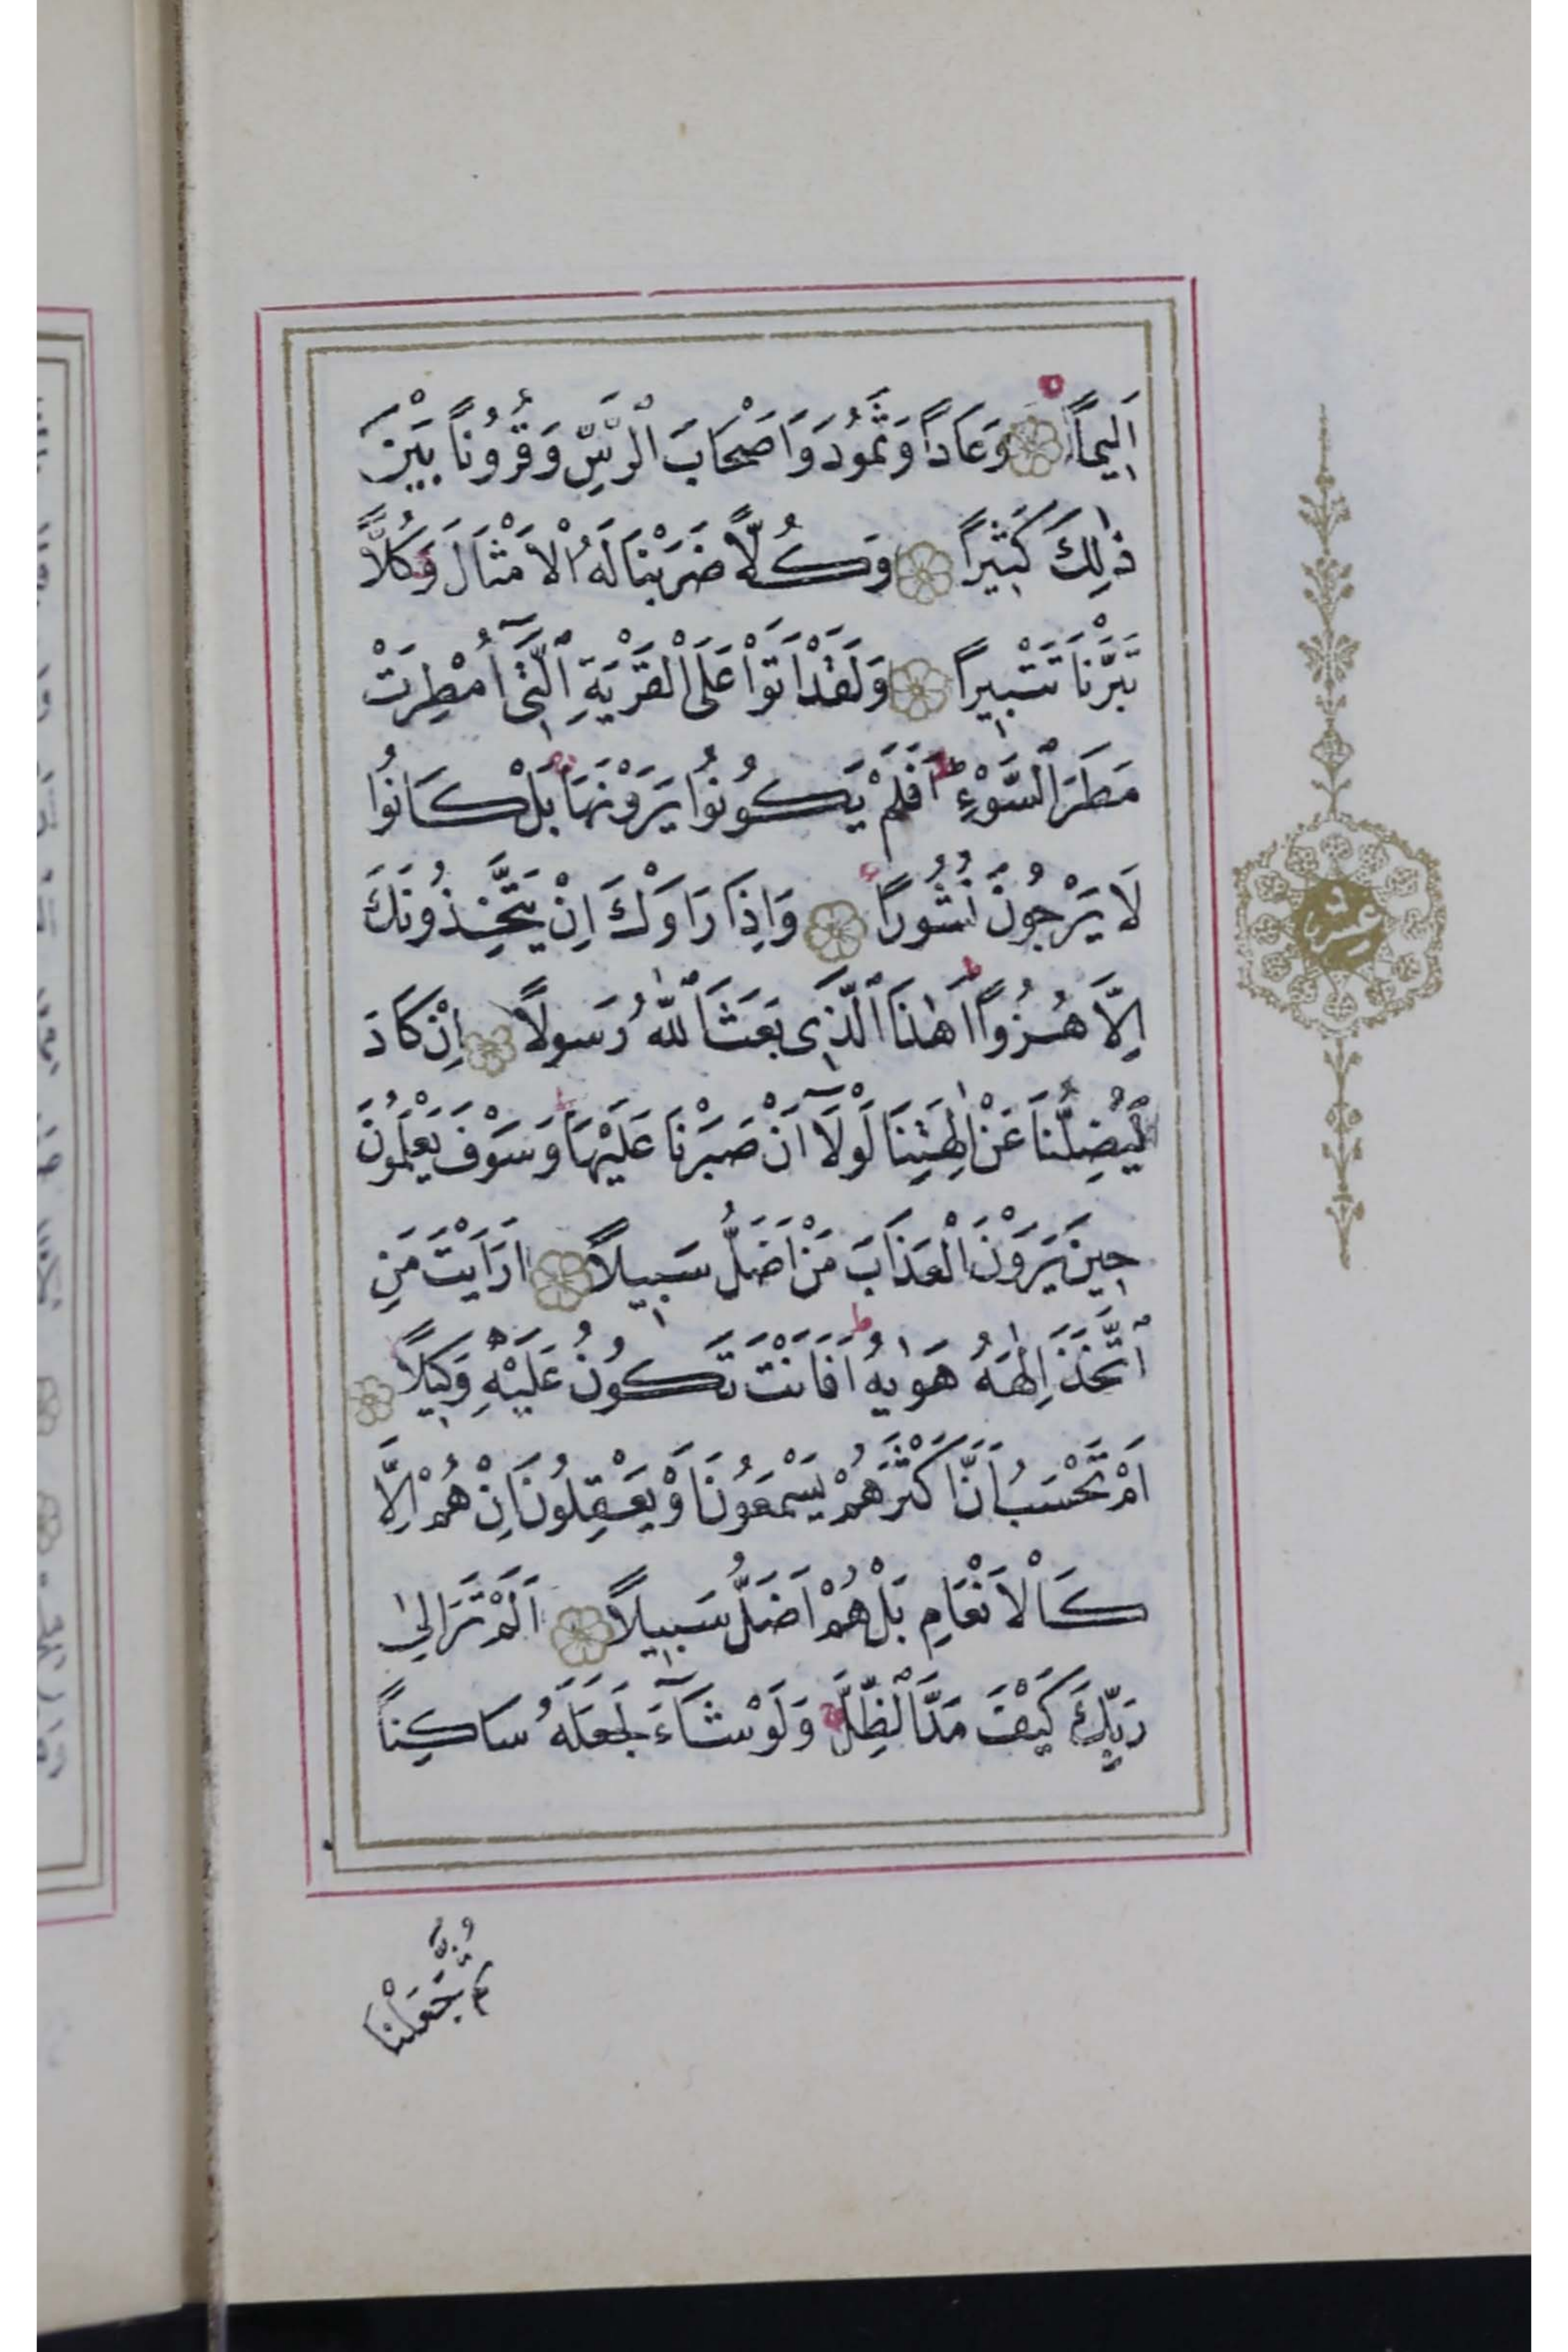 اَلِيماًۙ وَعَاداً وَثَمُودَ وَاَصْحَابَ الرَّسِّ وَقُرُوناً بَيْنَ
ذٰلِكَ كَثِيراً وَكُلّاً ضَرَبْنَا لَهُ الْاَمْثَالَ وَكُلّاً
تَبَّرْنَا تَتْبِيراً وَلَقَدْ اَتَوْا عَلَى الْقَرْيَةِ الَّتِٓى اُمْطِرَتْ
مَطَرَ السَّوْءِۜ اَفَلَمْ يَكُونُوا يَرَوْنَهَاۚ بَلْ كَانُوا
لَا يَرْجُونَ نُشُوراً وَاِذَا رَاَوْكَ اِنْ يَتَّخِذُونَكَ
اِلَّا هُزُواًۜ اَهٰذَا الَّذِى بَعَثَ اللّٰهُ رَسُولاً اِنْ كَادَ
لَيُضِلُّنَا عَنْ اٰلِهَتِنَا لَوْلَٓا اَنْ صَبَرْنَا عَلَيْهَاۜ وَسَوْفَ يَعْلَمُونَ
حِينَ يَرَوْنَ الْعَذَابَ مَنْ اَضَلُّ سَبِيلاً اَرَاَيْتَ مَنِ
اتَّخَذَ اِلٰهَهُ هَوٰيهُۜ اَفَاَنْتَ تَكُونُ عَلَيْهِ وَكِيلاً
اَمْ تَحْسَبُ اَنَّ اَكْثَرَهُمْ يَسْمَعُونَ اَوْ يَعْقِلُونَ اِنْ هُمْ اِلَّا
كَالْاَنْعَامِ بَلْ هُمْ اَضَلُّ سَبِيلاً اَلَمْ تَرَ اِلٰى
رَبِّكَ كَيْفَ مَدَّ الظِّلَّۚ وَلَوْ شَٓاءَ لَجَعَلَهُ سَاكِناً
ثُمَّ جَعَلْنَا
عشر